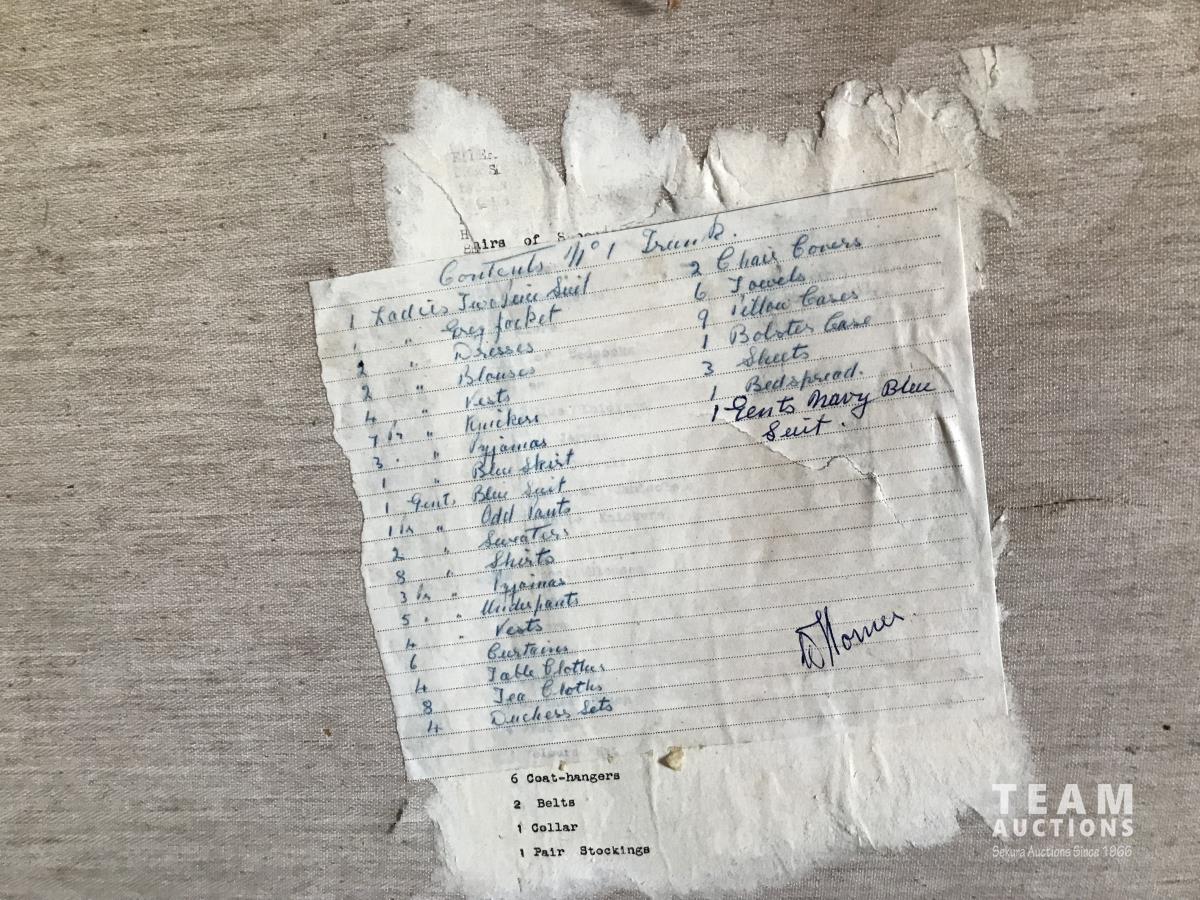 Pairs of
Contents No 1 Trunk.
1 Ladies Two Piece Suit
1 " Grey Jacket
2 " Dresses
2 " Blouses
4 " Vests
7 Pr " Knickers
3 " " Pyjamas
1 Blue Skirt
1 Gents Blue Suit
1 Pr " Odd Pants
2 " Sweaters
8 " Shirts
3 Pr " Pyjamas
5 " " Underpants
4 " Vests
6 Curtains
4 Table Cloths
8 Tea Cloths
4 Duchess Sets
2 Chair Covers
6 Towels
9 Pillow Cases
1 Bolster Case
3 Sheets
1 Bedspread.
1 Gents Navy Blue
Suit.
6 Coat-hangers
2 Belts
1 Collar
1 Pair Stockings
TEAM
AUCTIONS
Sekura Auctions Since 1966